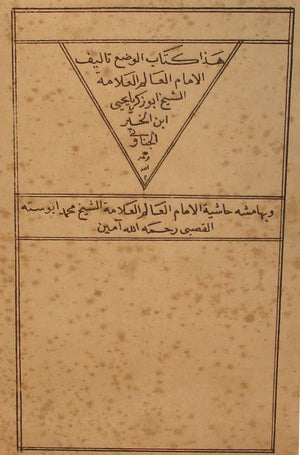 هذا كتاب الوضع تاليف
الامام العالم العلامة
الشيخ ابو زكريا يحيى
ابن الخير
الجناوني
رحمه
الله
وبهامشه حاشية الامام العالم العلامة الشيخ محمد ابو سته
القصبى رحمه الله آمين